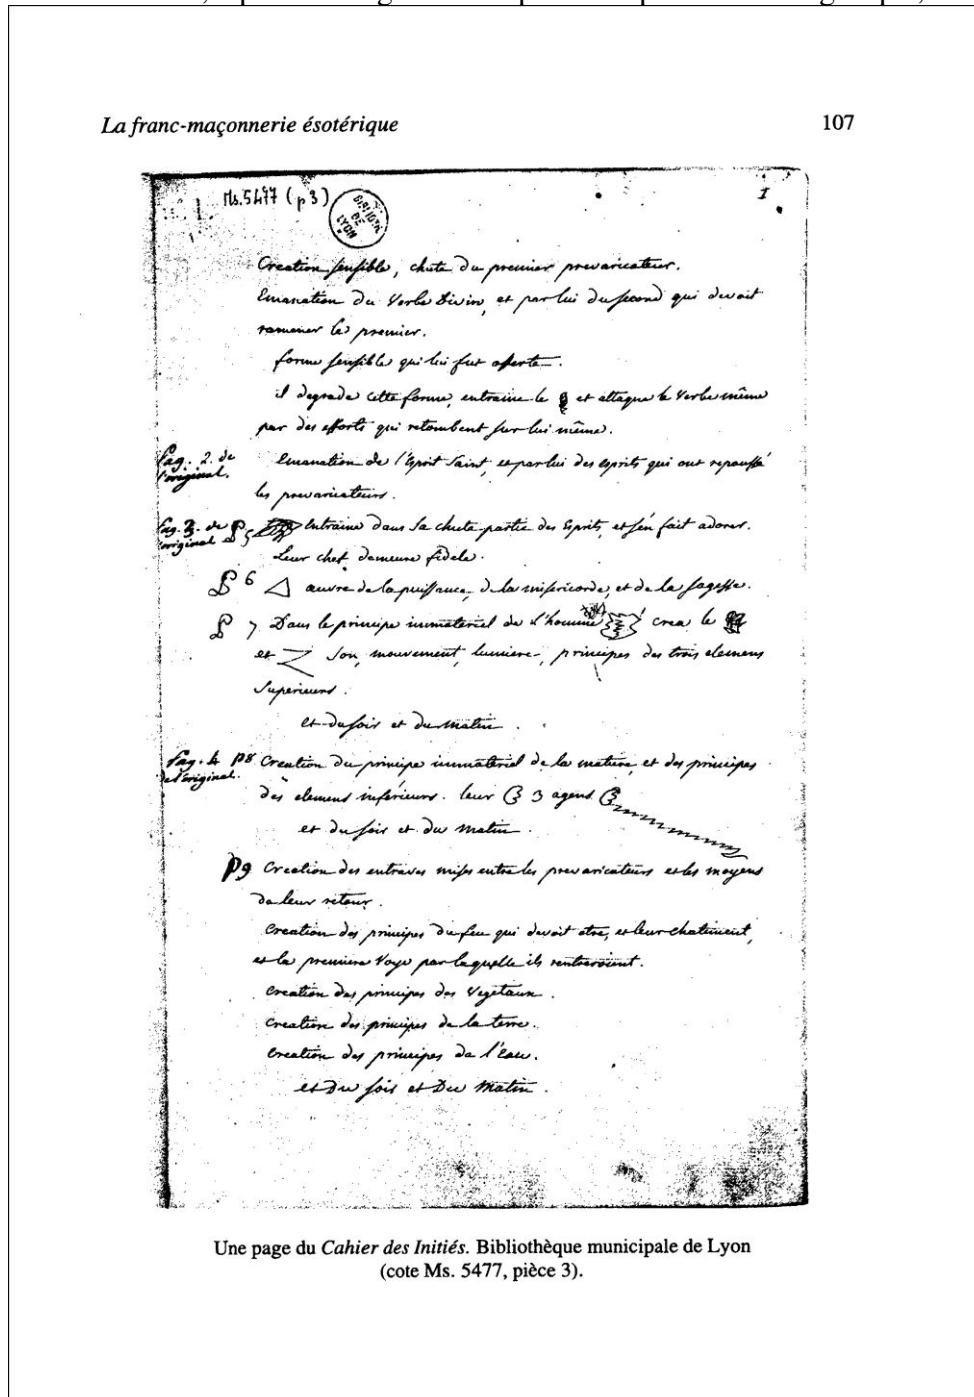 La franc-maçonnerie ésotérique 107
Ms. 5477 (p 3)
BIBLIOTH DE LYON
1
Creation sensible, chute du premier prevaricateur.
Emanation du Verbe Divin, et par lui du second qui devoit
ramener le premier.
forme sensible qui lui fut offerte.
il degrade cette forme, entraine le et attaque le Verbe même
par des efforts qui retombent sur lui même.
Pag. 2. de l'original.
Emanation de l'Esprit Saint, et par lui des esprits qui ont repoussé
les prevaricateurs.
Pag. 3. de l'original
P 5 Entraine dans sa chute partie des Esprits, et s'en fait adorer.
Leur chef demeure fidele.
P 6 △ œuvre de la puissance, de la misericorde, et de la sagesse.
P 7 Dans le principe immateriel de l'homme crea le
et son, mouvement, lumiere, principes des trois elemens
Superieurs.
et du soir et du matin.
Pag. 4 de l'original.
P8 Creation du principe immateriel de la matiere, et des principes
des elemens inférieurs. leur 3 agens
et du soir et du matin.
P9 Creation des entraves mises entre les prevaricateurs et les moyens
de leur retour.
Creation des principes du feu qui devoit etre, et leur chatiment,
et la premiere Voye par laquelle ils rentreroient.
Creation des principes des Vegetaux.
Creation des principes de la terre.
Creation des principes de l'Eau.
et Du soir et Du Matin.
Une page du Cahier des Initiés. Bibliothèque municipale de Lyon
(cote Ms. 5477, pièce 3).